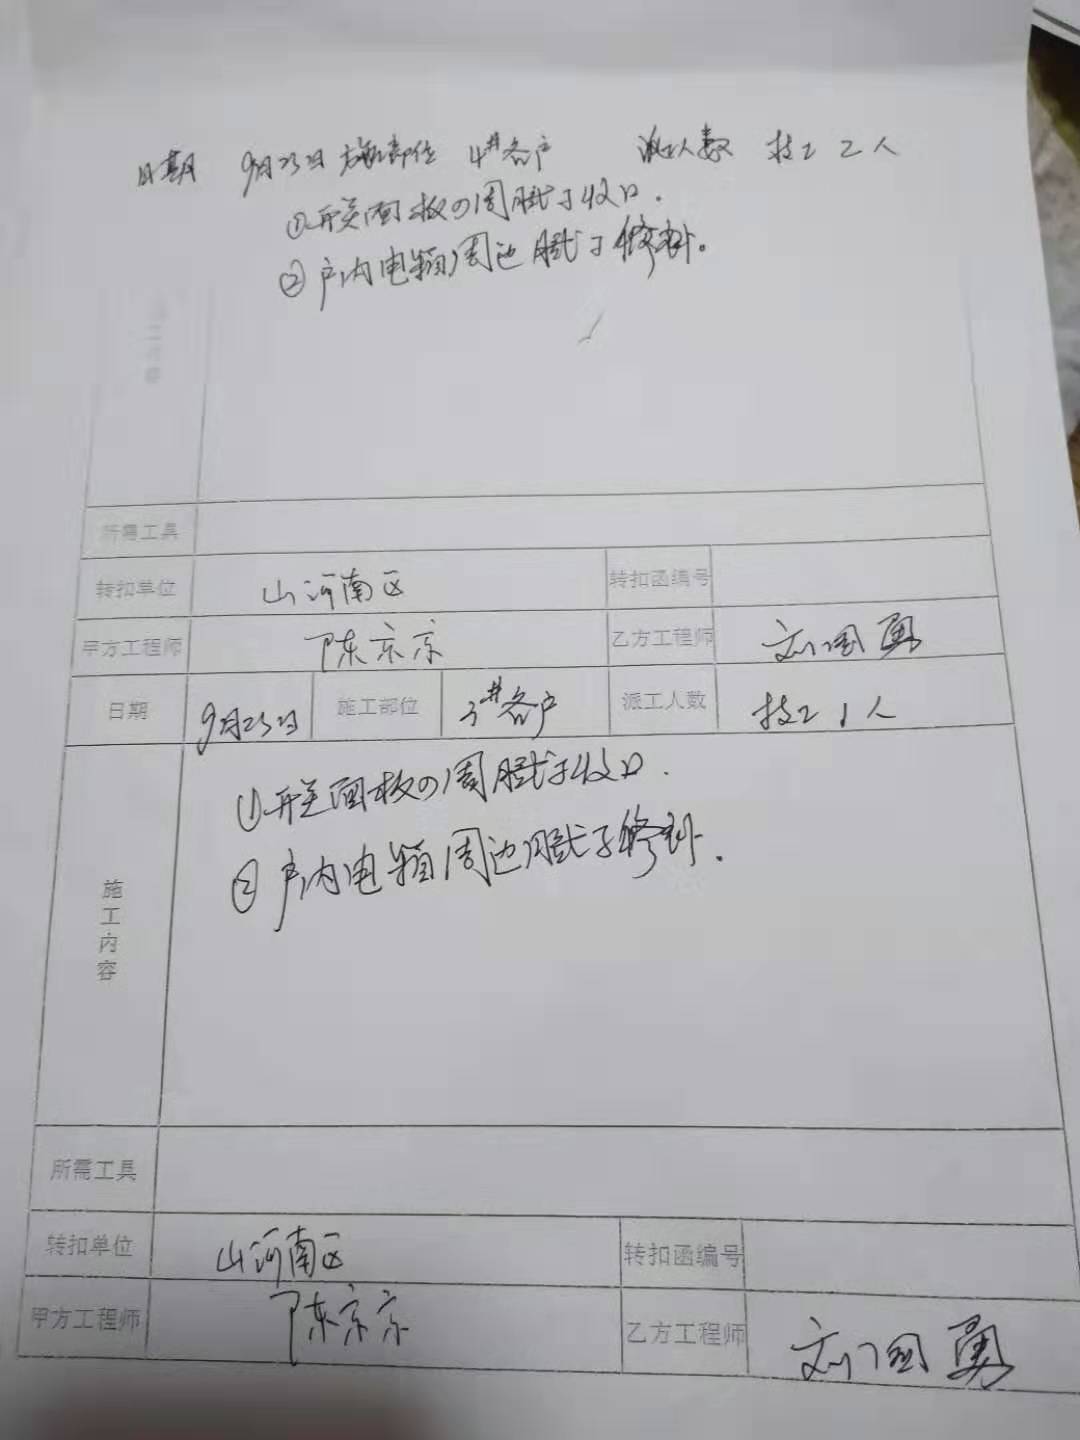 日期 9月23日 施工部位 4#各户 派工人数 技工 2人
①开关面板四周腻子收口.
②户内电箱周边腻子修补。
所需工具
转扣单位 山河南区 转扣函编号
甲方工程师 陈京京 乙方工程师 刘国勇
日期 9月23日 施工部位 3#各户 派工人数 技工1人
①开关面板四周腻子收口.
②户内电箱周边腻子修补.
施工内容
所需工具
转扣单位 山河南区 转扣函编号
甲方工程师 陈京京 乙方工程师 刘国勇